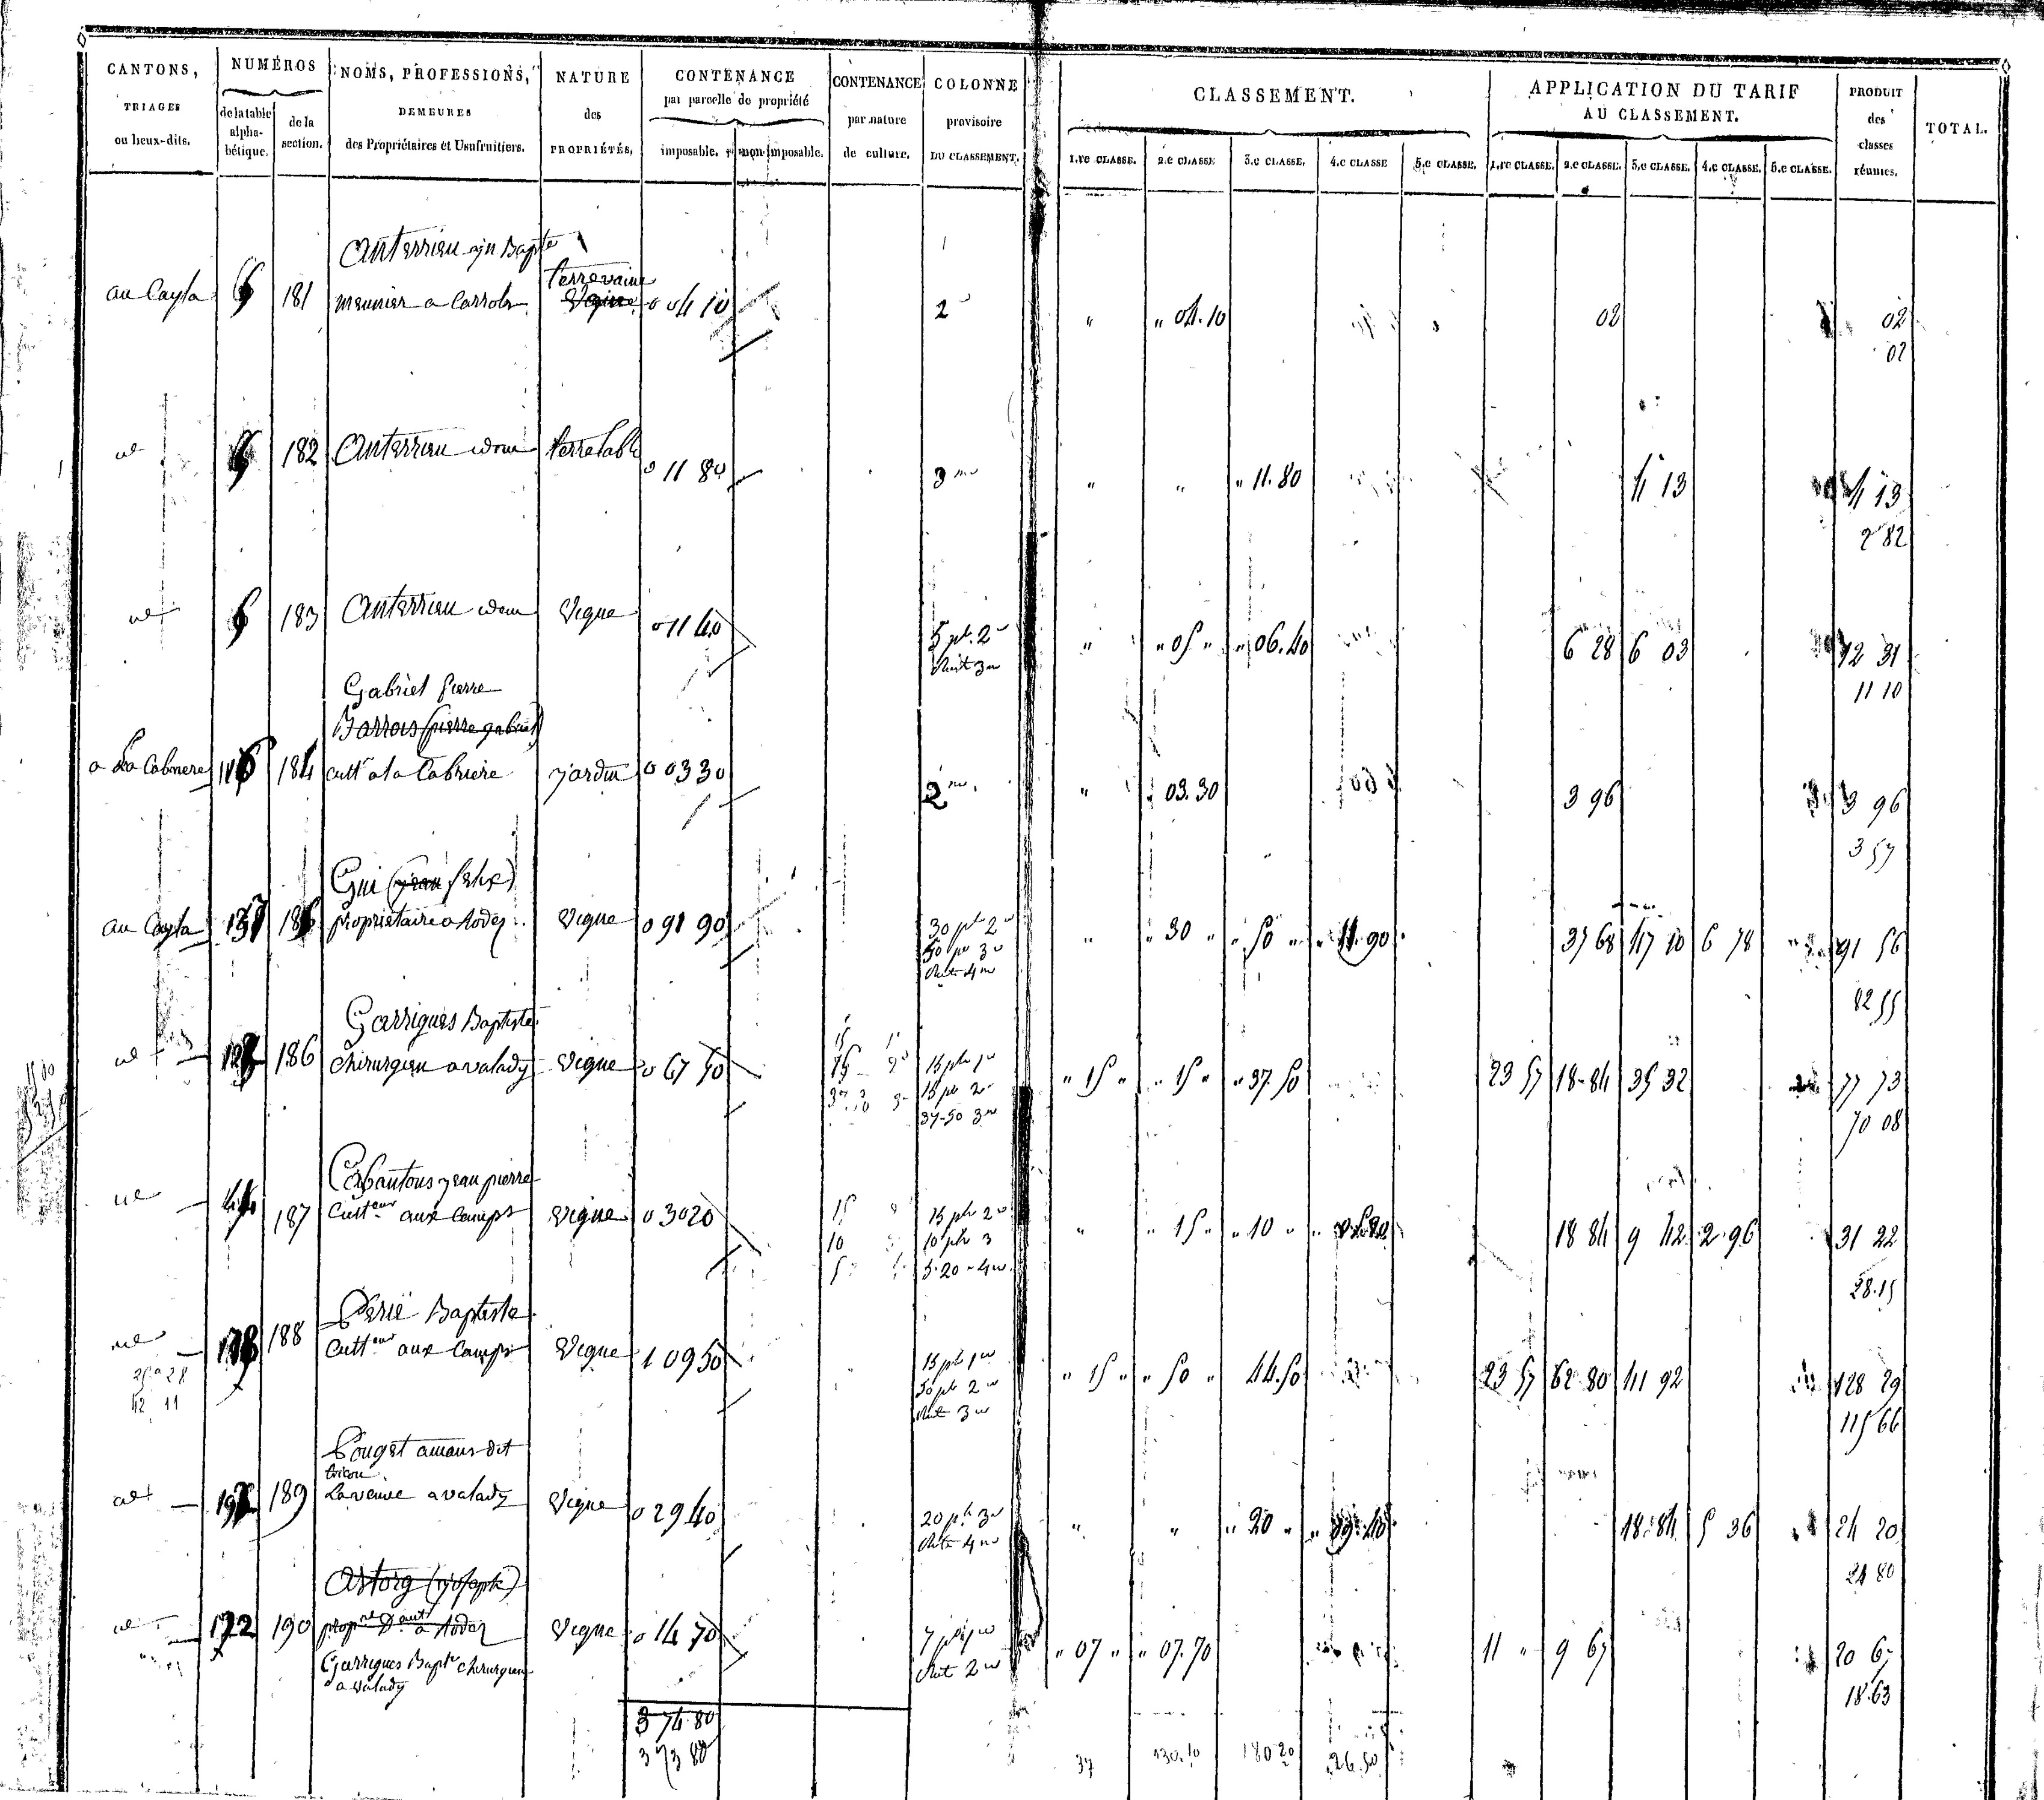 CANTONS, TRIAGES ou lieux-dits.
NUMÉROS
de la table alphabétique.
de la section.
NOMS, PROFESSIONS, DEMEURES des Propriétaires et Usufruitiers.
NATURE des PROPRIÉTÉS.
CONTENANCE par parcelle de propriété
imposable.
non-imposable.
CONTENANCE par nature de culture.
COLONNE provisoire DU CLASSEMENT.
CLASSEMENT.
1.re CLASSE. 2.e CLASSE 3.e CLASSE. 4.e CLASSE 5.e CLASSE.
APPLICATION DU TARIF AU CLASSEMENT.
1.re CLASSE. 2.e CLASSE. 3.e CLASSE. 4.e CLASSE. 5.e CLASSE.
PRODUIT des classes réunies.
TOTAL.
Anterrieu Bapte
terre vaine
au Cayla 6 181 meunier a 0 04 10 2 " " 04.10 02 02
02
182 Anterrieu idem terre lab 0 11 80 3 " " " 11.80 4 13 4 13
2 82
6 183 Anterrieu idem Vigne 0 11 40 5 pt. 2 " " 05 " " 06.40 6 28 6 03 12 31
11 10
Gabriel pierre
Barrois (pierre gabriel)
a La Cabriere 184 cultr a la Cabriere jardin 0 03 30 2 " 03.30 3 96 3 96
3 57
Gui (jean felix)
au Cayla 137 185 propriétaire a Rodez Vigne 0 91 90 30 pt 2 " " 30 " " 50 " " 11.90 37 68 47 10 6 78 91 56
50 pt 3
82 55
Garrigues Baptiste
186 chirurgien a valady Vigne 0 67 50 15 pt 1 " 15 " " 15 " " 37.50 23 57 18 84 35 32 77 73
15 pt 2
37-50 3
70 08
Cabantous jean pierre
187 Culteur aux Camps Vigne 0 30 20 15 pt 2 " " 15 " " 10 " 18 84 9 42 2 96 31 22
10 pt 3
5.20 - 4
28.15
Perié Baptiste
178 188 Culteur aux Camps Vigne 1 09 50 15 pt 1 " 15 " " 50 " 44.50 23 57 62 80 41 92 128 29
50 pt 2
115 66
Pouget amans dit
189 La veuve a valady Vigne 0 29 40 20 pt 3 " " " 20 " 18 84 5 36 24 20
24 80
Astorg (joseph)
172 190 propre a Rodez Vigne 0 14 70 7 pt 1 " 07 " " 07.70 11 " 9 67 20 67
Garrigues Bapte chirurgien
a valady
18.63
3 74 80
3 73 80
37 130.10 180 20 26.50